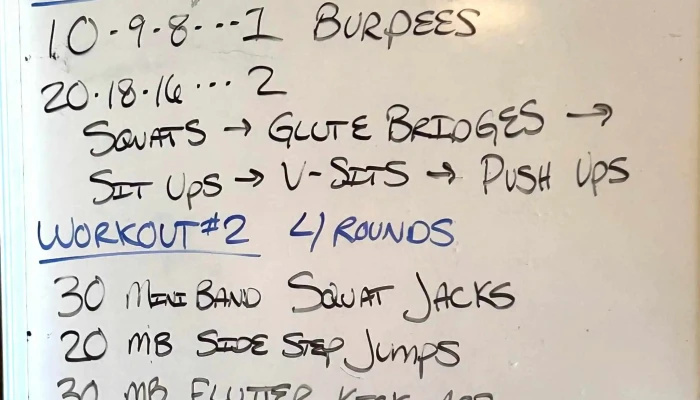 10-9-8...1 BURPEES
20·18·16... 2
SQUATS → GLUTE BRIDGES →
SIT UPS → V-SITS → PUSH UPS
WORKOUT #2 4 ROUNDS
30 MINI BAND SQUAT JACKS
20 MB SIDE STEP JUMPS
30 MB FLUTTER